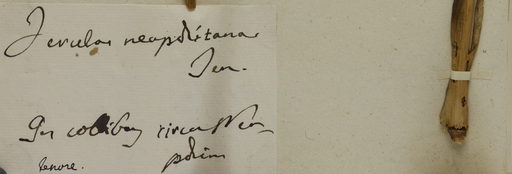 Ferulae neapolitanae
Ten.
In collibus circa Nea-
polim
Tenore.